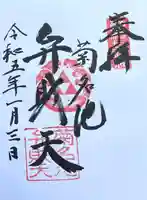 奉拝
菊名池
弁財天
令和五年一月三日
菊名池
弁財天